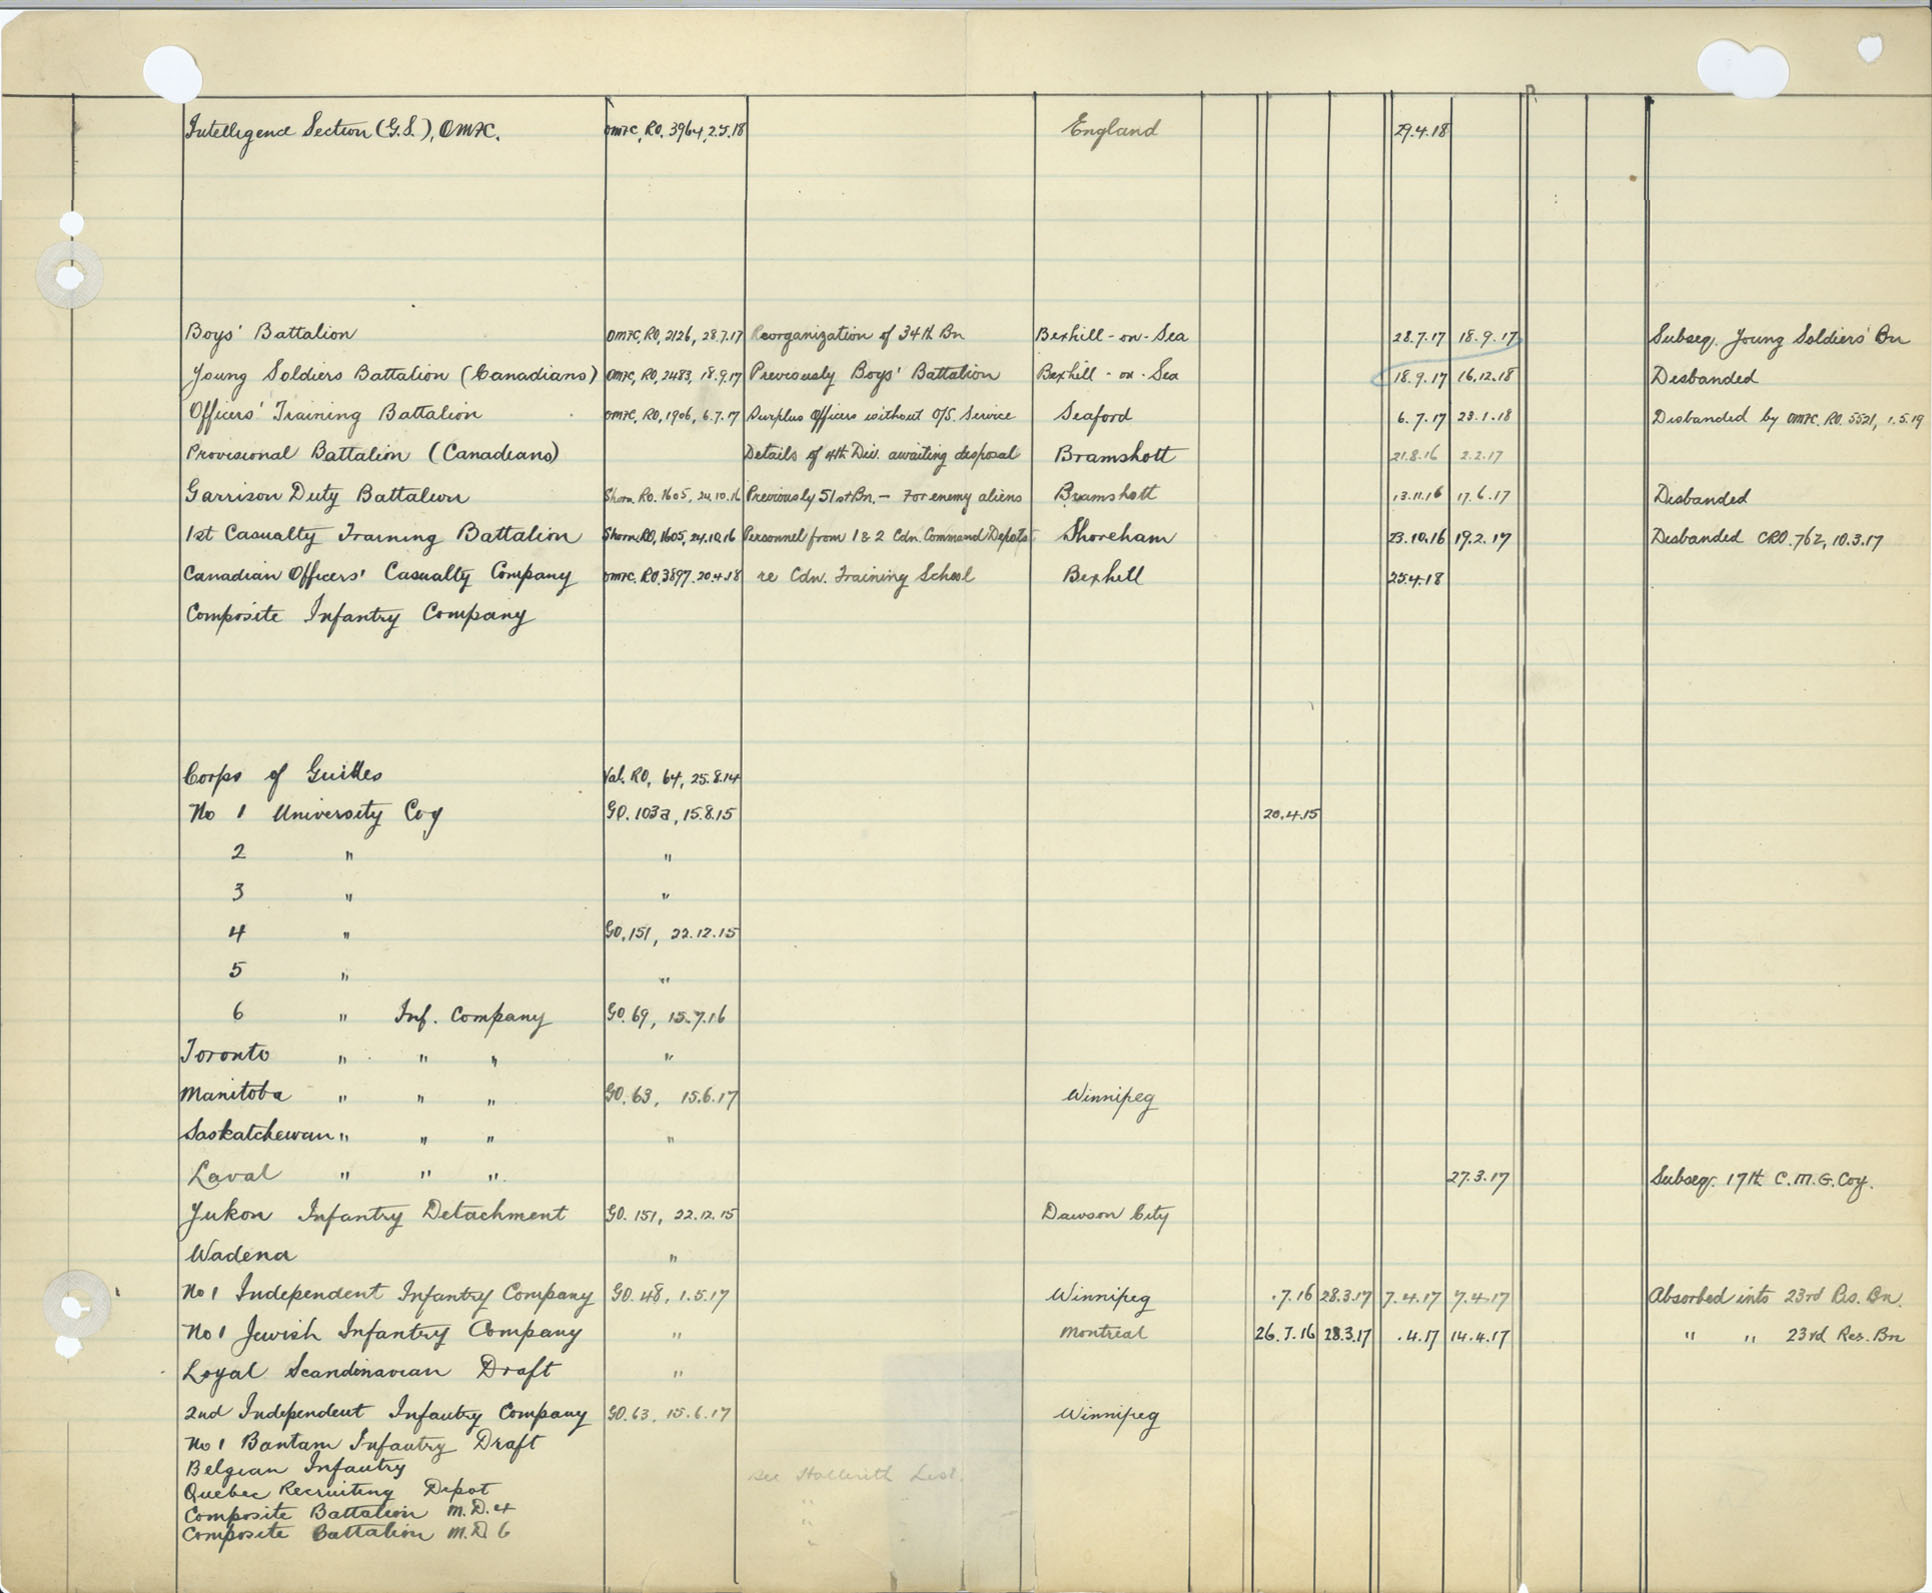 Intelligence Section (G.S.), OMFC. OMFC, RO. 3964, 2.5.18 England 29.4.18
Boys' Battalion OMFC, RO, 2126, 28.7.17 Reorganization of 34th Bn Bexhill-on-Sea 28.7.17 18.9.17 Subseq. Young Soldiers' Bn
Young Soldiers Battalion (Canadians) OMFC, RO, 2483, 18.9.17 Previously Boys' Battalion Bexhill-on-Sea 18.9.17 16.12.18 Disbanded
Officers' Training Battalion OMFC, RO, 1906, 6.7.17 Surplus Officers without O/S. Service Seaford 6.7.17 23.1.18 Disbanded by OMFC. RO. 5521, 1.5.19
Provisional Battalion (Canadians) Details of 4th Div. awaiting disposal Bramshott 21.8.16 2.2.17
Garrison Duty Battalion Shorn. RO. 1605, 24.10.16 Previously 51st Bn. - For enemy aliens Bramshott 13.11.16 17.6.17 Disbanded
1st Casualty Training Battalion Shorn. RO, 1605, 24.10.16 Personnel from 1 & 2 Cdn. Command Depots Shoreham 23.10.16 19.2.17 Disbanded CRO. 762, 10.3.17
Canadian Officers' Casualty Company OMFC. RO. 3897. 20.4.18 re Cdn. Training School Bexhill 25.4.18
Composite Infantry Company
Corps of Guides Val. RO, 64, 25.8.14
No 1 University Coy GO. 103a, 15.8.15 20.4.15
2 " "
3 " "
4 " GO. 151, 22.12.15
5 " "
6 " Inf. Company GO. 69, 15.7.16
Toronto " " " "
Manitoba " " " GO. 63, 15.6.17 Winnipeg
Saskatchewan " " " "
Laval " " " 27.3.17 Subseq. 17th C.M.G. Coy.
Yukon Infantry Detachment GO. 151, 22.12.15 Dawson City
Wadena "
No 1 Independent Infantry Company GO. 48, 1.5.17 Winnipeg .7.16 28.3.17 7.4.17 7.4.17 Absorbed into 23rd Res. Bn.
No 1 Jewish Infantry Company " Montreal 26.7.16 28.3.17 .4.17 14.4.17 " " 23rd Res. Bn
Loyal Scandinavian Draft "
2nd Independent Infantry Company GO. 63, 15.6.17 Winnipeg
No 1 Bantam Infantry Draft
Belgian Infantry see Hollerith List.
Quebec Recruiting Depot "
Composite Battalion M.D. 4 "
Composite Battalion M.D 6 "